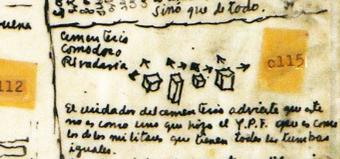 sino que de todo.
cementerio
Comodoro
Rivadavia
c115
112
El cuidador del cementerio advierte que este
no es como uno que hizo el Y.P.F. que es como
los de los militares que tienen todas las tumbas
iguales.